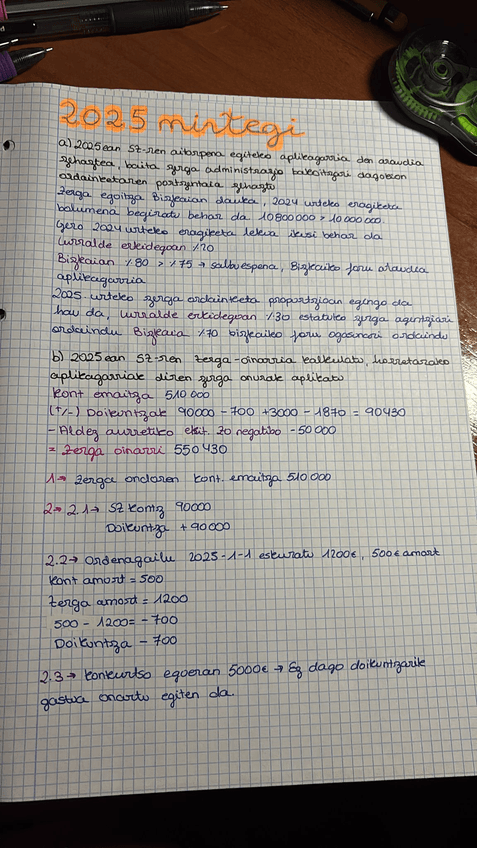 2025 mintegi
a) 2025ean SZ-ren aitorpena egiteko aplikagarria den araudia
zehaztea, baita zerga administrazio bakoitzari dagokion
ordainketaren portzentaia zehaztu
Zerga egoitza Bizkaian dauka, 2024 urteko eragiketa
bolumena begiratu behar da 10800000 > 10000000.
Gero 2024 urteko eragiketa lekua ikusi behar da
Lurralde erkidegoan %20
Bizkaian %80 > %75 → salbuespena, Bizkaiko foru araudia
aplikagarria
2025 urteko zerga ordainketa proportzioan egingo da
hau da, Lurralde erkidegoan %30 estatuko zerga agentziari
ordaindu Bizkaia %70 bizkaiko foru ogasunari ordaindu
b) 2025ean SZ-ren zerga-oinarria kalkulatu, horretarako
aplikagarriak diren zerga onurak aplikatu
Kont emaitza 510000
(+/-) Doikuntzak 90000 - 700 + 3000 - 1870 = 90430
- Aldez aurretiko ekit. ZO negatibo - 50000
= Zerga oinarri 550430
1 → Zerga ondoren kont. emaitza 510000
2 → 2.1 → SZ kontg 90000
Doikuntza + 90000
2.2 → Ordenagailu 2025-1-1 eskuratu 1200€, 500€ amort
Kont amort = 500
Zerga amort = 1200
500 - 1200 = - 700
Doikuntza - 700
2.3 → Konkurtso egoeran 5000€ → Ez dago doikuntzarik
gastua onartu egiten da.